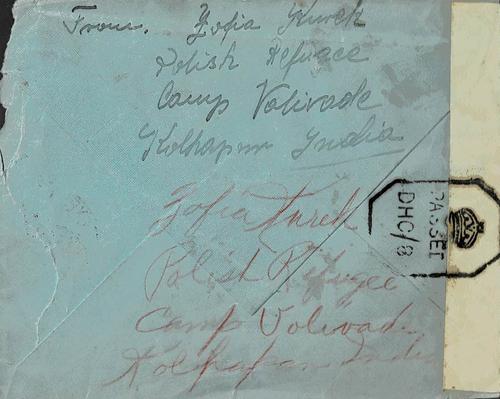 From. Zofia Kurek
Polish Refugee
Camp Valivade
Kolhapur India
Zofia Kurek
Polish Refugee
Camp Volivade
Kolhapur India
PASSED
DHC/8